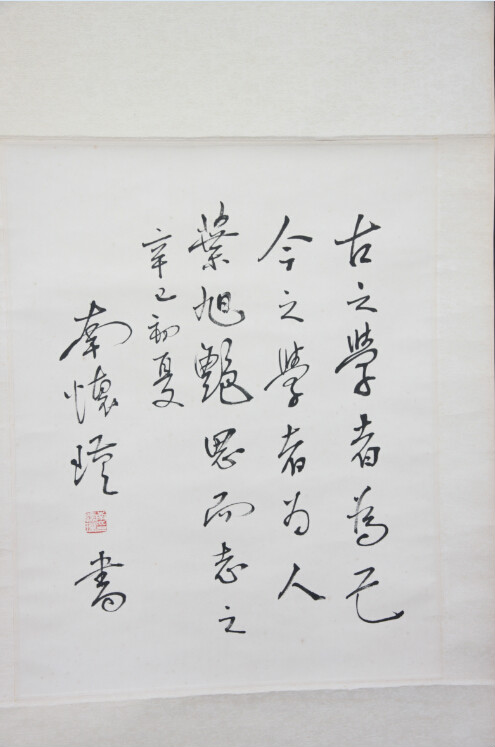 古之學者為己
今之學者为人
縈旭艷思而志之
辛巳初夏
南懷瑾
書